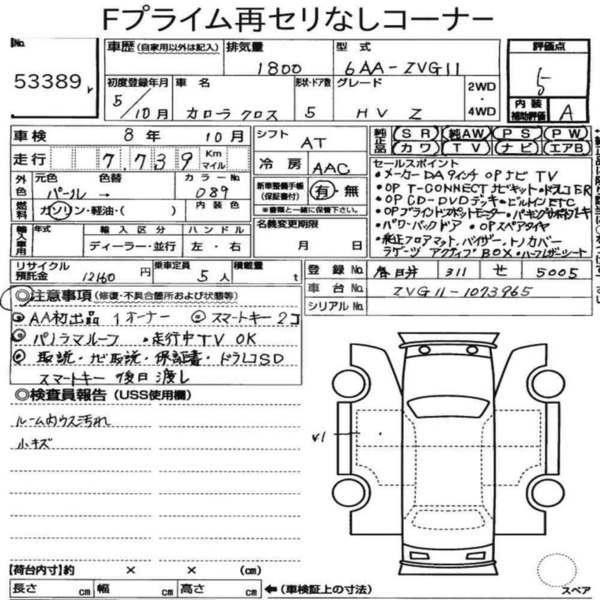 Fプライム再セリなしコーナー
No.
53389
車歴 (自家用以外は記入)
排気量
1800
型式
6AA-ZVG11
評価点
5
内装補助評価 A
初度登録年月
5/10月
車名
カローラクロス
形状・ドア数
5
グレード
HV Z
2WD
・
4WD
車検 8年 10月
シフト AT
純正品 SR 純AW PS PW
カワ TV ナビ エアB
走行 77739 Km マイル
冷房 AAC
外色 元色 色替
パール →
カラーNo. 089
新車整備手帳(保証書付) 有・無
※書類と一緒に保管下さい。
燃料 ガソリン・軽油・( )
内装色
輸入車用 年式 輸入区分 ハンドル
ディーラー・並行 左・右
名義変更期限
月 日
セールスポイント
・メーカーDA 9インチ OPナビ TV
・OP T-CONNECT ナビキット・ドラレコ ETR
・OP CD・DVDデッキ・ビルインETC
・OPブラインドスポットモニター・パーキングサポートブレーキ
・パワーバックドア ・OPスペアタイヤ
・純正フロアマット、バイザー、トノカバー
ラゲージ アクティブBOX・ハーフレザーシート
リサイクル預託金 12160 円
乗車定員 5人
積載量 t
登録No. 春日井 311 せ 5005
車台No. ZVG11-1073965
シリアルNo.
◎注意事項 (修復・不具合箇所および状態等)
◎AA初出品 1オーナー ◎スマートキー2コ
◎パノラマルーフ ・走行中TV OK
◎取説・ナビ取説・保証書・ドラレコSD
スマートキー 後日渡し
◎検査員報告 (USS使用欄)
ルーム内ウス汚れ
小キズ
【荷台内寸】約 × × (cm)
長さ cm 幅 cm 高さ cm
←(車検証上の寸法)
スペア